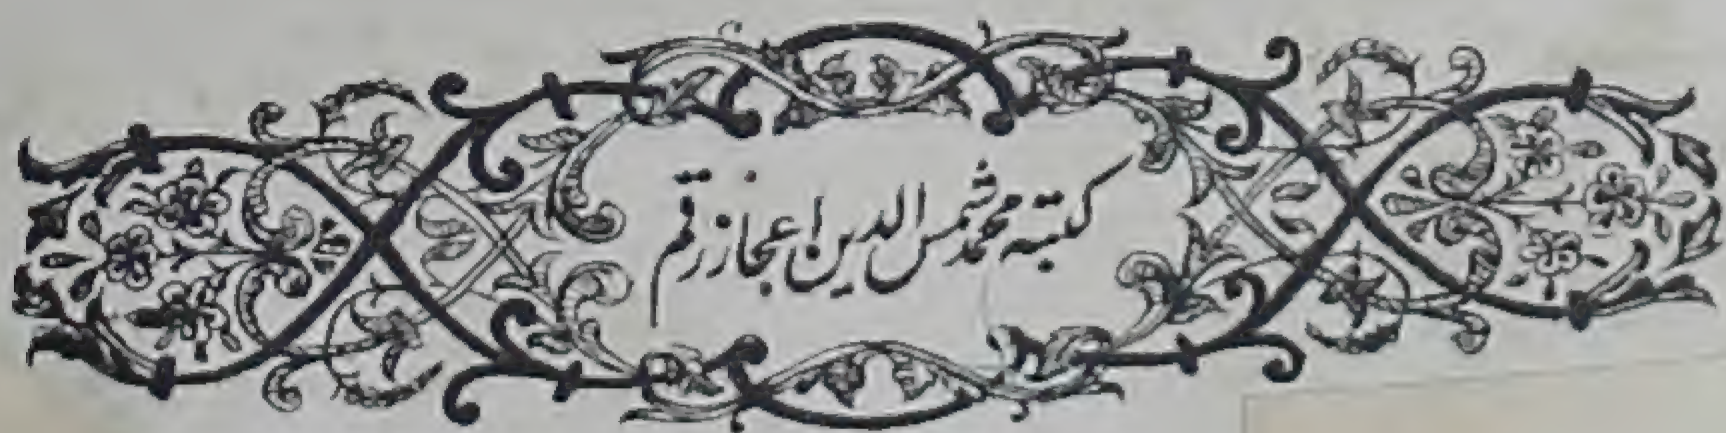 کتبہ محمد شمس الدین اعجاز رقم